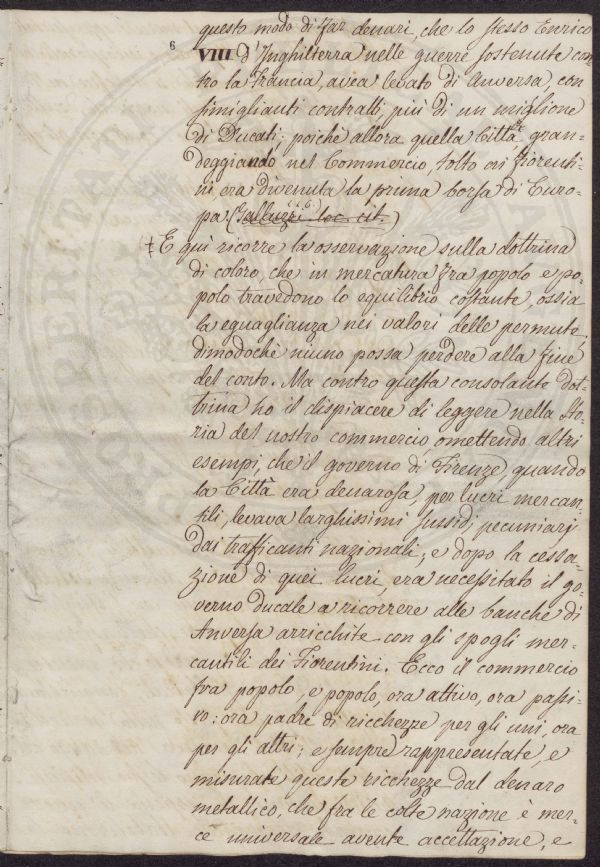 questo modo di far denari, che lo stesso Enrico
6
VIII d'Inghilterra nelle guerre sostenute con-
tro la Francia, avea levato di Anversa, con
simiglianti contratti, più di un miglione
di Ducati; poichè allora quella Città gran-
deggiando nel Commercio, tolto ai fiorenti-
ni, era divenuta la prima borsa di Euro-
pa (Galluzzi. loc. cit.)
‡ E quì ricorre la osservazione sulla dottrina
di coloro, che in mercatura fra popolo e po-
polo travedono lo equilibrio costante, ossia
la eguaglianza nei valori delle permute,
dimodochè niuno possa perdere alla fine
del conto. Ma contro questa consolante dot-
trina ho il dispiacere di leggere nella Sto-
ria del nostro commercio, omettendo altri
esempi, che il governo di Firenze, quando
la Città era denarosa, per lucri mercan-
tili, levava larghissimi sussidj pecuniarj
dai trafficanti nazionali; e dopo la cessa-
zione di quei lucri, era necessitato il go-
verno ducale a ricorrere alle banche di
Anversa arricchite con gli spogli mer-
cantili dei Fiorentini. Ecco il commercio
fra popolo, e popolo, ora attivo, ora passi-
vo: ora padre di ricchezze per gli uni, ora
per gli altri; e sempre rappresentate, e
misurate queste ricchezze dal denaro
metallico, che fra le colte nazione è mer-
ce universale avente accettazione, e